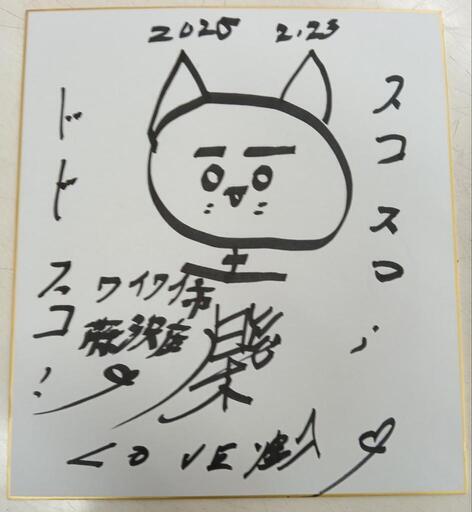 2025 2.23
スコ スコ
ドド スコ
ワイワイ市
藤沢店
LOVE注入